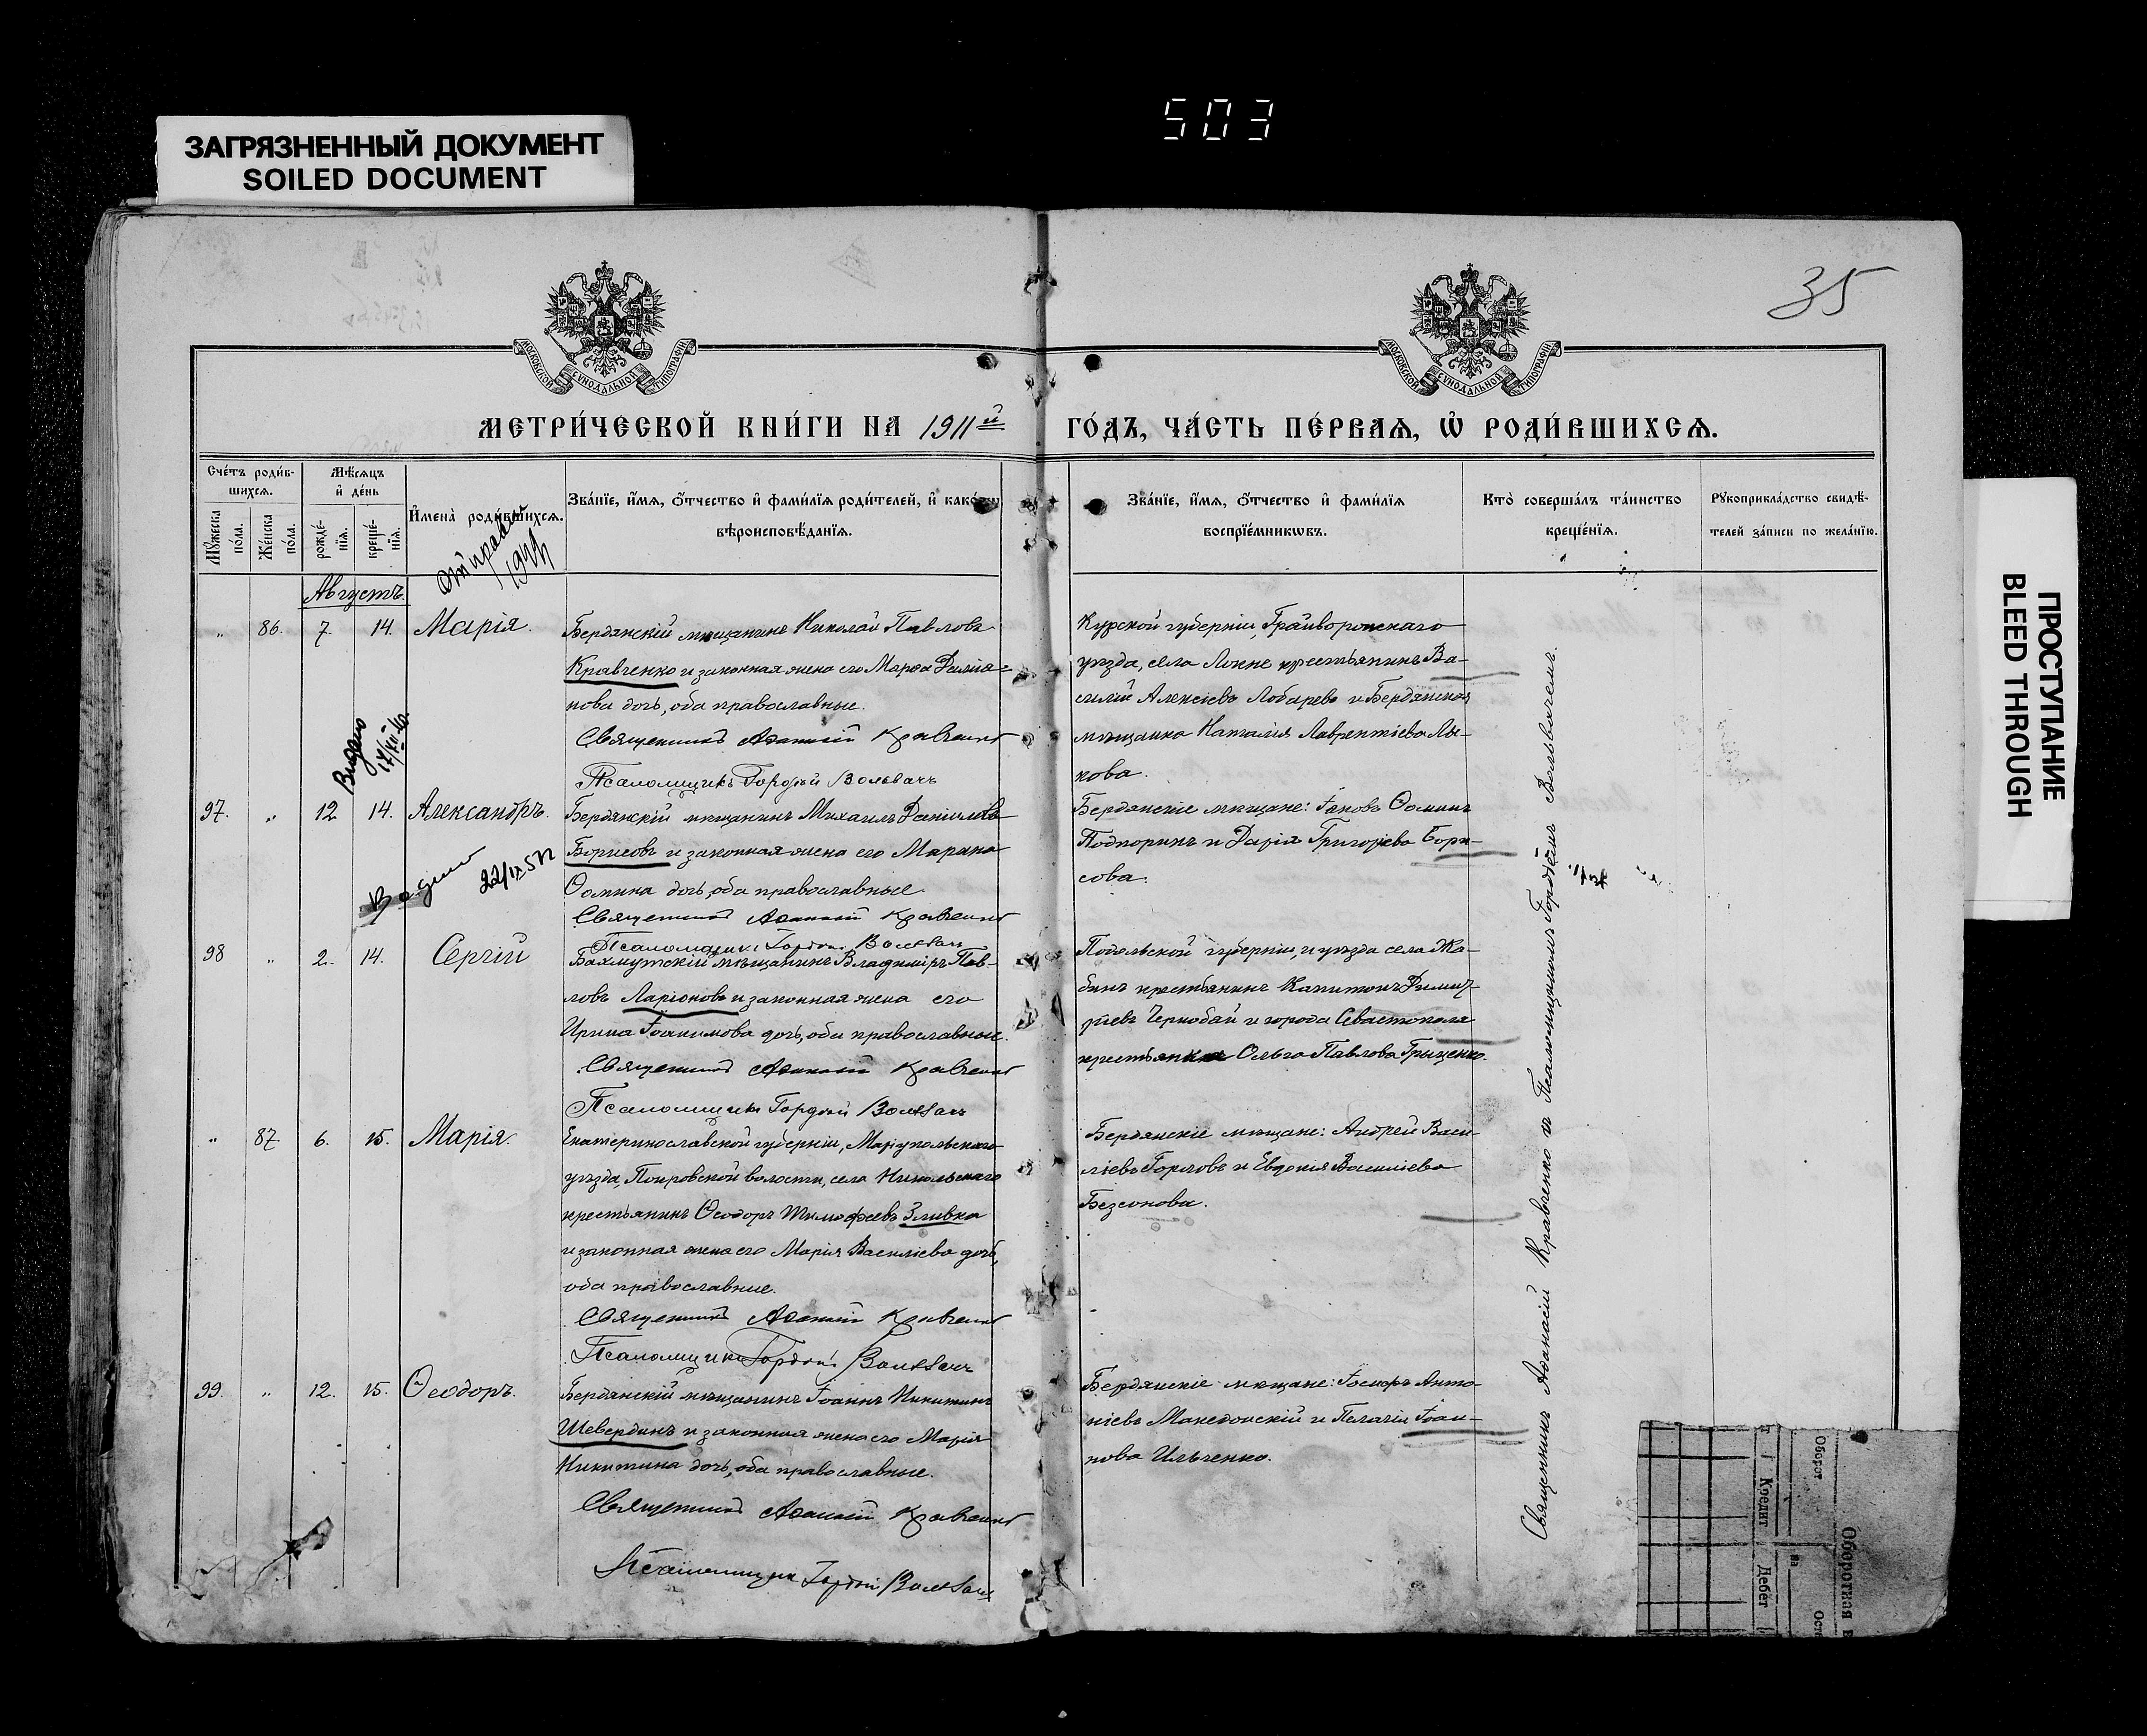 503
ЗАГРЯЗНЕННЫЙ ДОКУМЕНТ
SOILED DOCUMENT
ПРОСТУПАНИЕ
BLEED THROUGH
35
МОСКОВСКОЙ СУНОДАЛЬНОЙ ТИПОГРАФІИ
МОСКОВСКОЙ СУНОДАЛЬНОЙ ТИПОГРАФІИ
МЕТРИ́ЧЕСКОЙ КНИ́ГИ НА 1911й ГО́ДЪ, ЧА́СТЬ ПЕ́РВАѦ, Ѡ҆ РОДИ́ВШИХСѦ.
Сче́тъ роди́в-
шихсѧ.
Мꙋ́жеска
по́ла.
Же́нска
по́ла.
Мѣ́сѧцъ
и҆ де́нь
рожде́-
нїѧ.
креще́-
нїѧ.
И҆мена̀ роди́вшихсѧ.
Зва́нїе, и҆́мѧ, ѻ҆́тчество и҆ фами́лїѧ роди́телей, и҆ како́гѡ
вѣроисповѣ́данїѧ.
Зва́нїе, и҆́мѧ, ѻ҆́тчество и҆ фами́лїѧ
воспрїе́мникѡвъ.
Кто̀ соверша́лъ та́инство
креще́нїѧ.
Рꙋкоприкла́дство свидѣ́-
телей за́писи по жела́нїю.
Августъ.
„ 86. 7. 14. Марія.
Бердянскій мѣщанинъ Николай Павловъ
Кравченко и законная жена его Марѳа Даміа=
нова дочь, оба православные.
Священникъ Аѳанасій Кравченко
Псаломщикъ Гордѣй Вольвачъ
Курской губерніи, Грайворонскаго
уѣзда, села Локне крестьянинъ Ва-
силій Алексіевъ Лобаревъ и Бердянская
мѣщанка Наталія Лаврентіева Лы-
кова.
Выдано
97. „ 12 14. Александръ.
Бердянскій мѣщанинъ Михаилъ Даніиловъ
Борисовъ и законная жена его Марина
Ѳомина дочь, оба православные.
Священникъ Аѳанасій Кравченко
Псаломщикъ Гордѣй Вольвачъ
Бердянскіе мѣщане: Іаковъ Ѳоминъ
Подпоринъ и Дарія Григоріева Бори-
сова.
22/IX 57г
98 „ 2. 14. Сергій
Бахмутскій мѣщанинъ Владиміръ Пав-
ловъ Ларіоновъ и законная жена его
Ирина Іоакимова дочь, оба православные.
Священникъ Аѳанасій Кравченко
Псаломщикъ Гордѣй Вольвачъ
Подольской губерніи, и уѣзда села Жа-
бинъ крестьянинъ Капитонъ Димит-
ріевъ Чернобай и города Севастополя
крестьянка Ольга Павлова Грищенко.
„ 87 6. 15. Марія.
Екатеринославской губерніи, Маріупольскаго
уѣзда, Покровской волости, села Никольскаго
крестьянинъ Ѳеодоръ Тимоѳеевъ Зливка
и законная жена его Марія Василіева дочь,
оба православные.
Священникъ Аѳанасій Кравченко
Псаломщикъ Гордѣй Вольвачъ
Бердянскіе мѣщане: Андрей Васи-
ліевъ Горловъ и Евдокія Василіева
Безсонова.
99. „ 12. 15. Ѳеодоръ.
Бердянскій мѣщанинъ Іоаннъ Никитинъ
Шевердинъ и законная жена его Марія
Никитина дочь, оба православные.
Священникъ Аѳанасій Кравченко
Псаломщикъ Гордѣй Вольвачъ
Бердянскіе мѣщане: Іосифъ Анто-
ніевъ Македонскій и Пелагія Іоан-
нова Ильченко.
Священникъ Аѳанасій Кравченко и Псаломщикъ Гордѣемъ Вольвачемъ.
Оборот
Кредит
Дебет
на
Оборотная